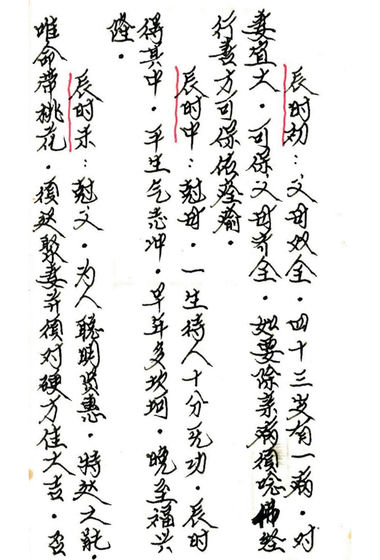 辰时初：父母双全。四十三岁有一病。对
妻宜大。可保父母齐全。如要除亲病须念佛经
行善方可保依
辰时中：尅母。一生待人十分无功。辰时
得其中。平生气志冲。早年多坎坷。晚至福兴
隆。
辰时末：尅父。为人聪明贤惠。特然之能。
唯命带桃花。须然聚妻并须对硬方佳大吉。否